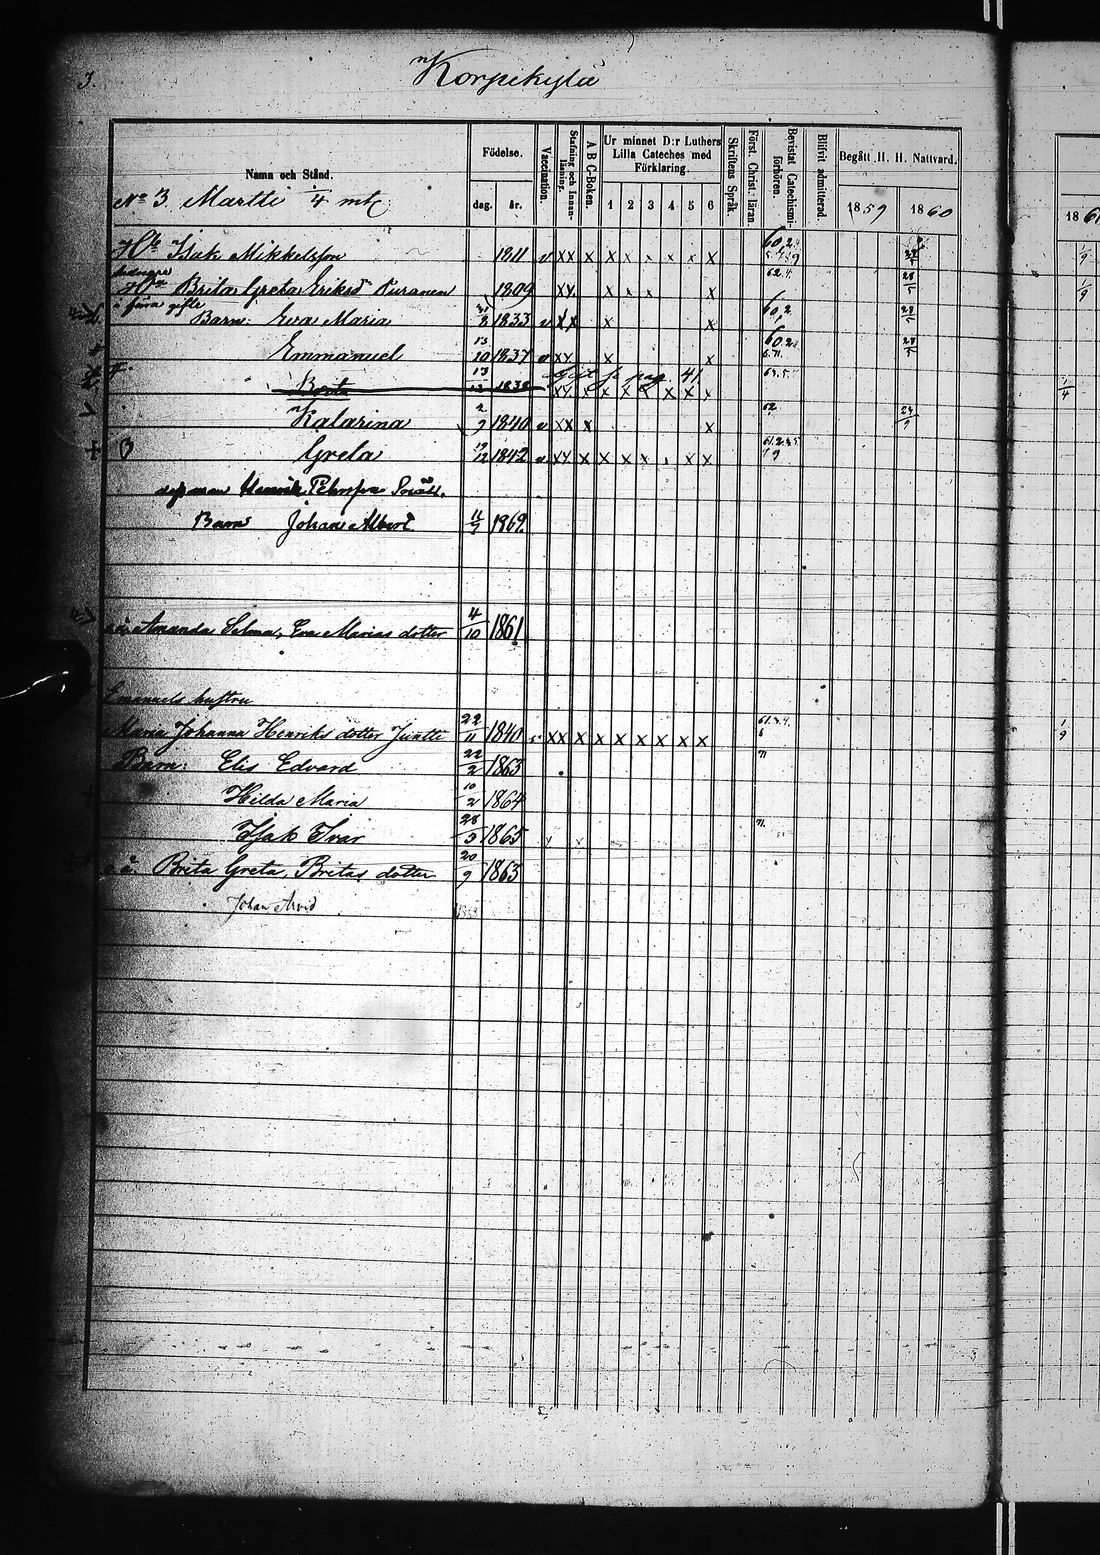 3.
Korpikylä
Namn och Stånd.
Födelse.
dag.
år.
Vaccination.
Stafning och Innanläsning.
A B C-Boken.
Ur minnet D:r Luthers Lilla Cateches med Förklaring.
1 2 3 4 5 6
Skriftens Språk.
Först. Christ. läran.
Bevistat Catechismiförhören.
Blifvit admitterad
Begått H. H. Nattvard.
1859
1860
186
No 3 Martti 1/4 mtl
Isak Mikkelsson 1811 v xx x x x x x x x 60,2
Brita Greta Eriksd Puranen 1809 xx x x x x 62.4.
i förra gifte
Barn: Eva Maria 31/8 1833 v xx x x 60,2
Emmanuel 13/10 1837 v xx x x 60,2
Brita 13/12 1838 gift f. pag. 41. xx x x x x x x x 63.5.
Katarina 2/9 1840 v xx x x 62
Greta 19/12 1842 v xx x x x x x x
Henrik Pehrsson
Barn Johan Albert 11/7 1869.
o.ä. Amanda Selma, Eva Marias dotter 4/10 1861
Emanuels hustru
Maria Johanna Henriks dotter Juntti 22/11 1840 xx x x x x x x x 61.3.4.
Barn: Elis Edvard 22/2 1863 71
Hilda Maria 10/2 1864
Isak Ivar 28/9 1865 71.
o.ä. Brita Greta, Britas dotter 20/9 1863
Johan Arvid